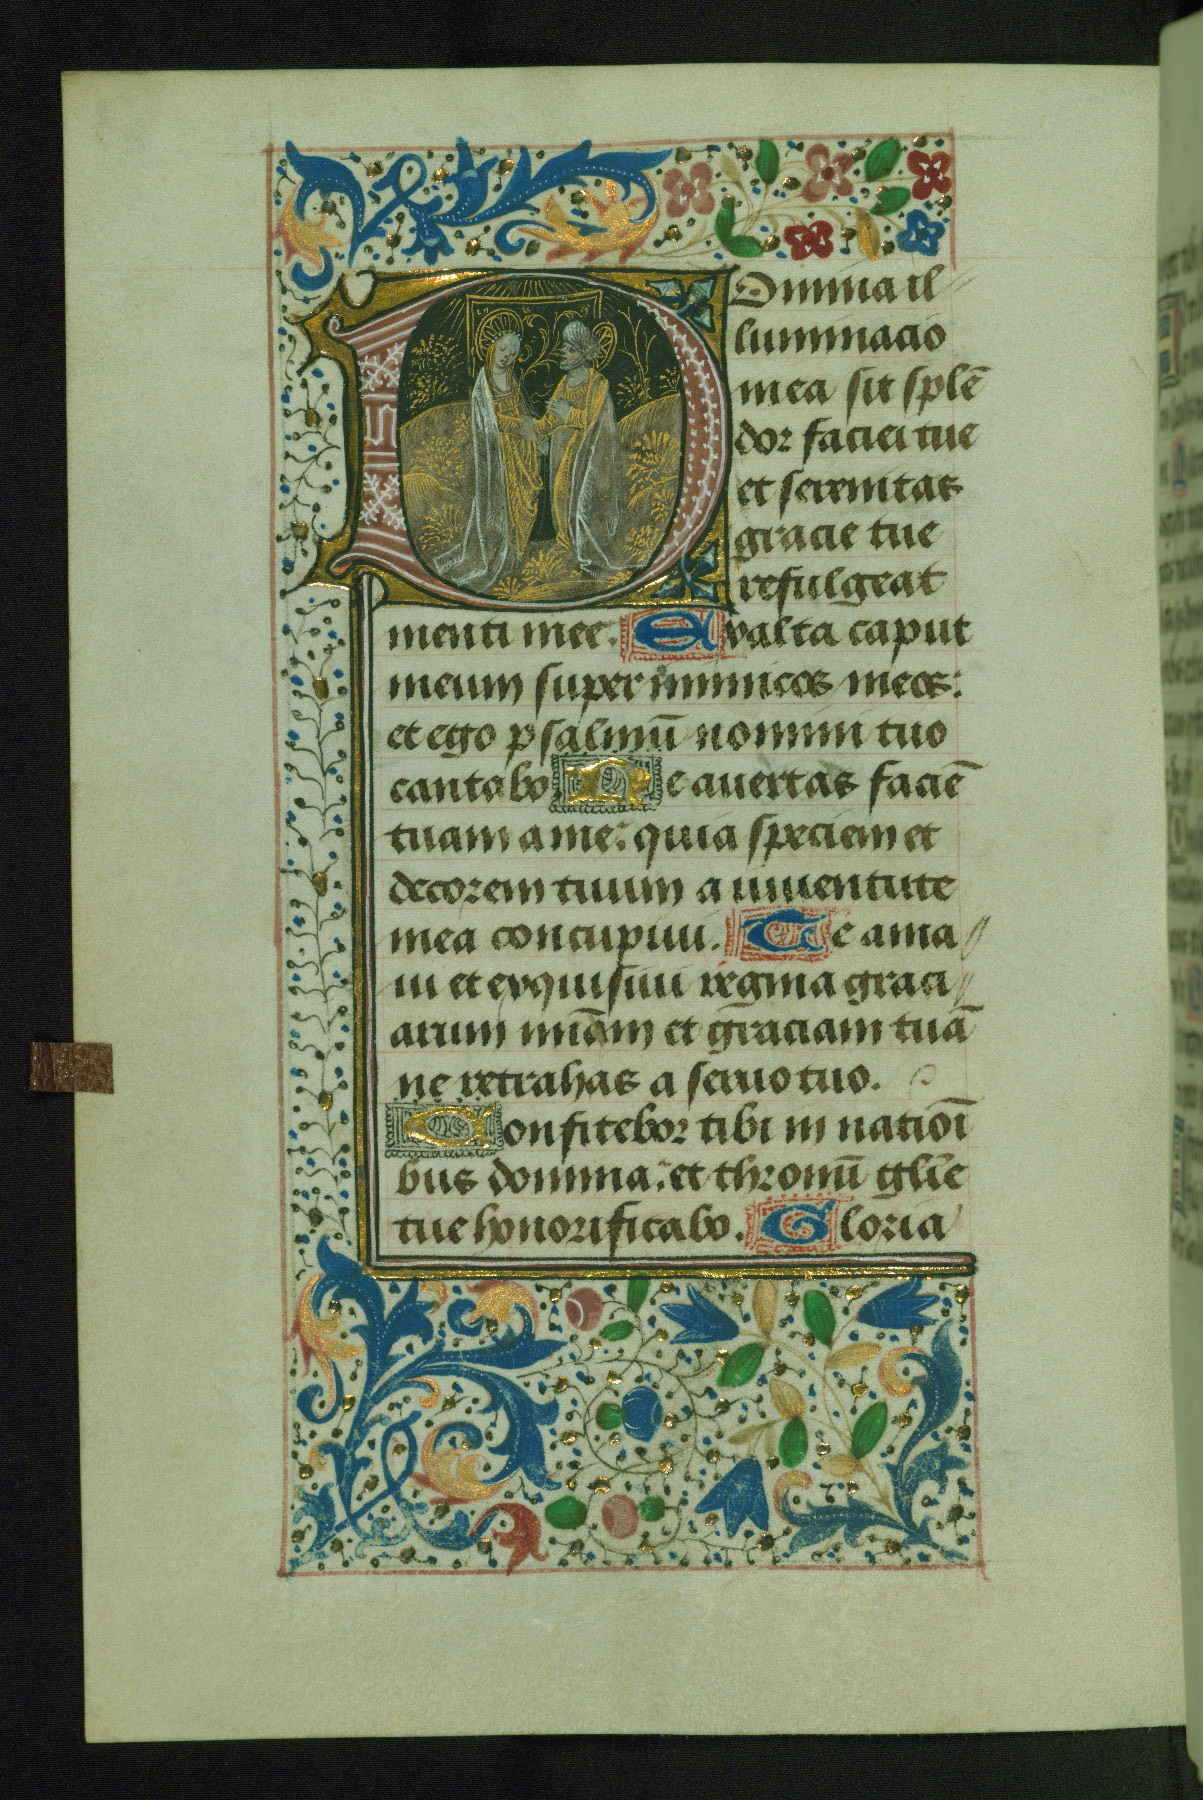 Domina il
luminacio
mea sit splē
dor faciei tue
et serenitas
gracie tue
refulgeat
menti mee. Exalta caput
meum super inimicos meos:
et ego psalmū nomini tuo
cantabo Ne auertas faciē
tuam a me: quia speciem et
decorem tuum a iuuentute
mea concupiui. Te ama
ui et exquisiui regina graci
arum mīam et graciam tuā
ne retrahas a seruo tuo.
Confitebor tibi in nationī
bus domina: et thronū glīe
tue honorificabo. Gloria